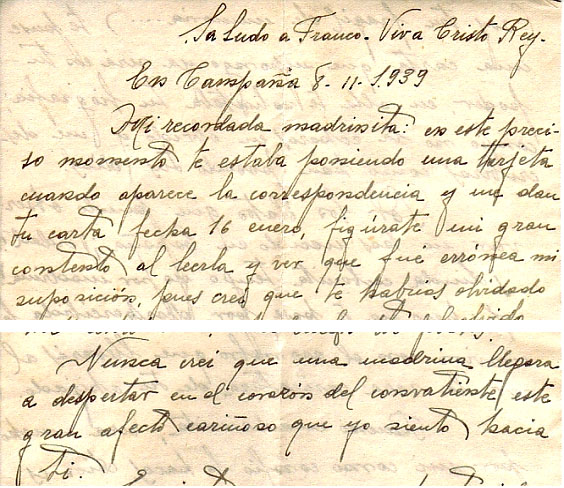 Saludo a Franco - Viva Cristo Rey.-
En Campaña 8-11-1939
Mi recordada madrinita: en este preci-
so momento te estaba poniendo una tarjeta
cuando aparece la correspondencia y me dan
tu carta fecha 16 enero, figúrate mi gran
contento al leerla y ver que fué errónea mi
suposición, pues creí que te habrías olvidado
Nunca creí que una madrina llegara
a despertar en el corazón del convatiente este
gran afecto cariñoso que yo siento hacia
ti.